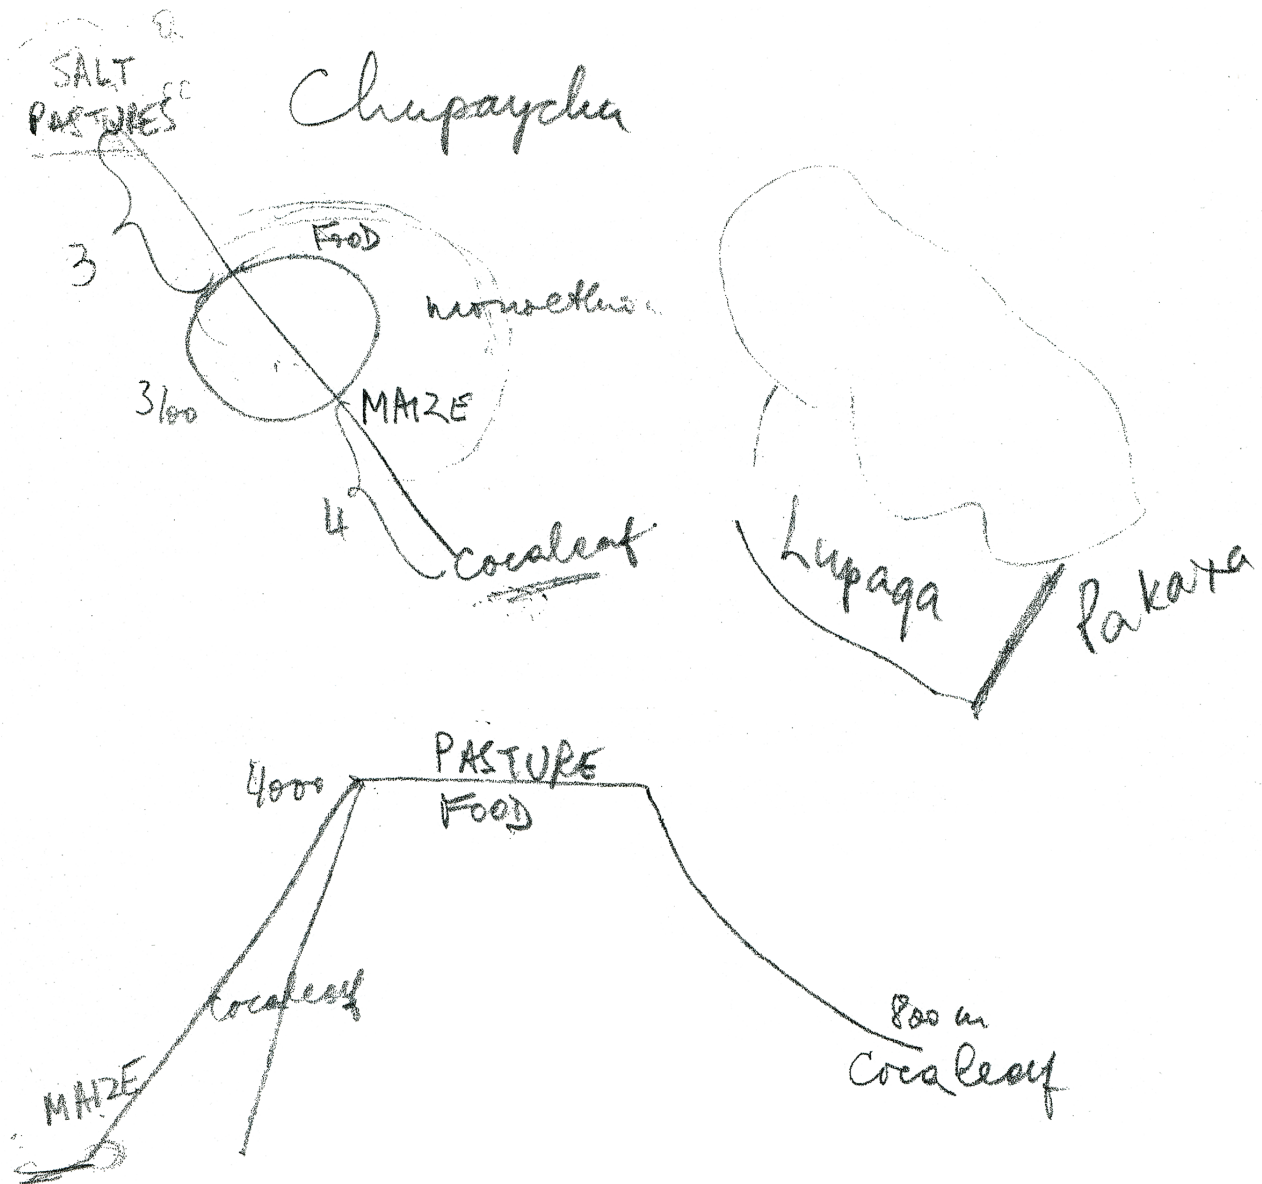 SALT
PASTURES
Chupaychu
3
FOOD
3/00
MAIZE
4
Cocaleaf
Lupaqa
Pakaxa
4000
PASTURE
FOOD
Cocaleaf
MAIZE
800 m
Coca leaf